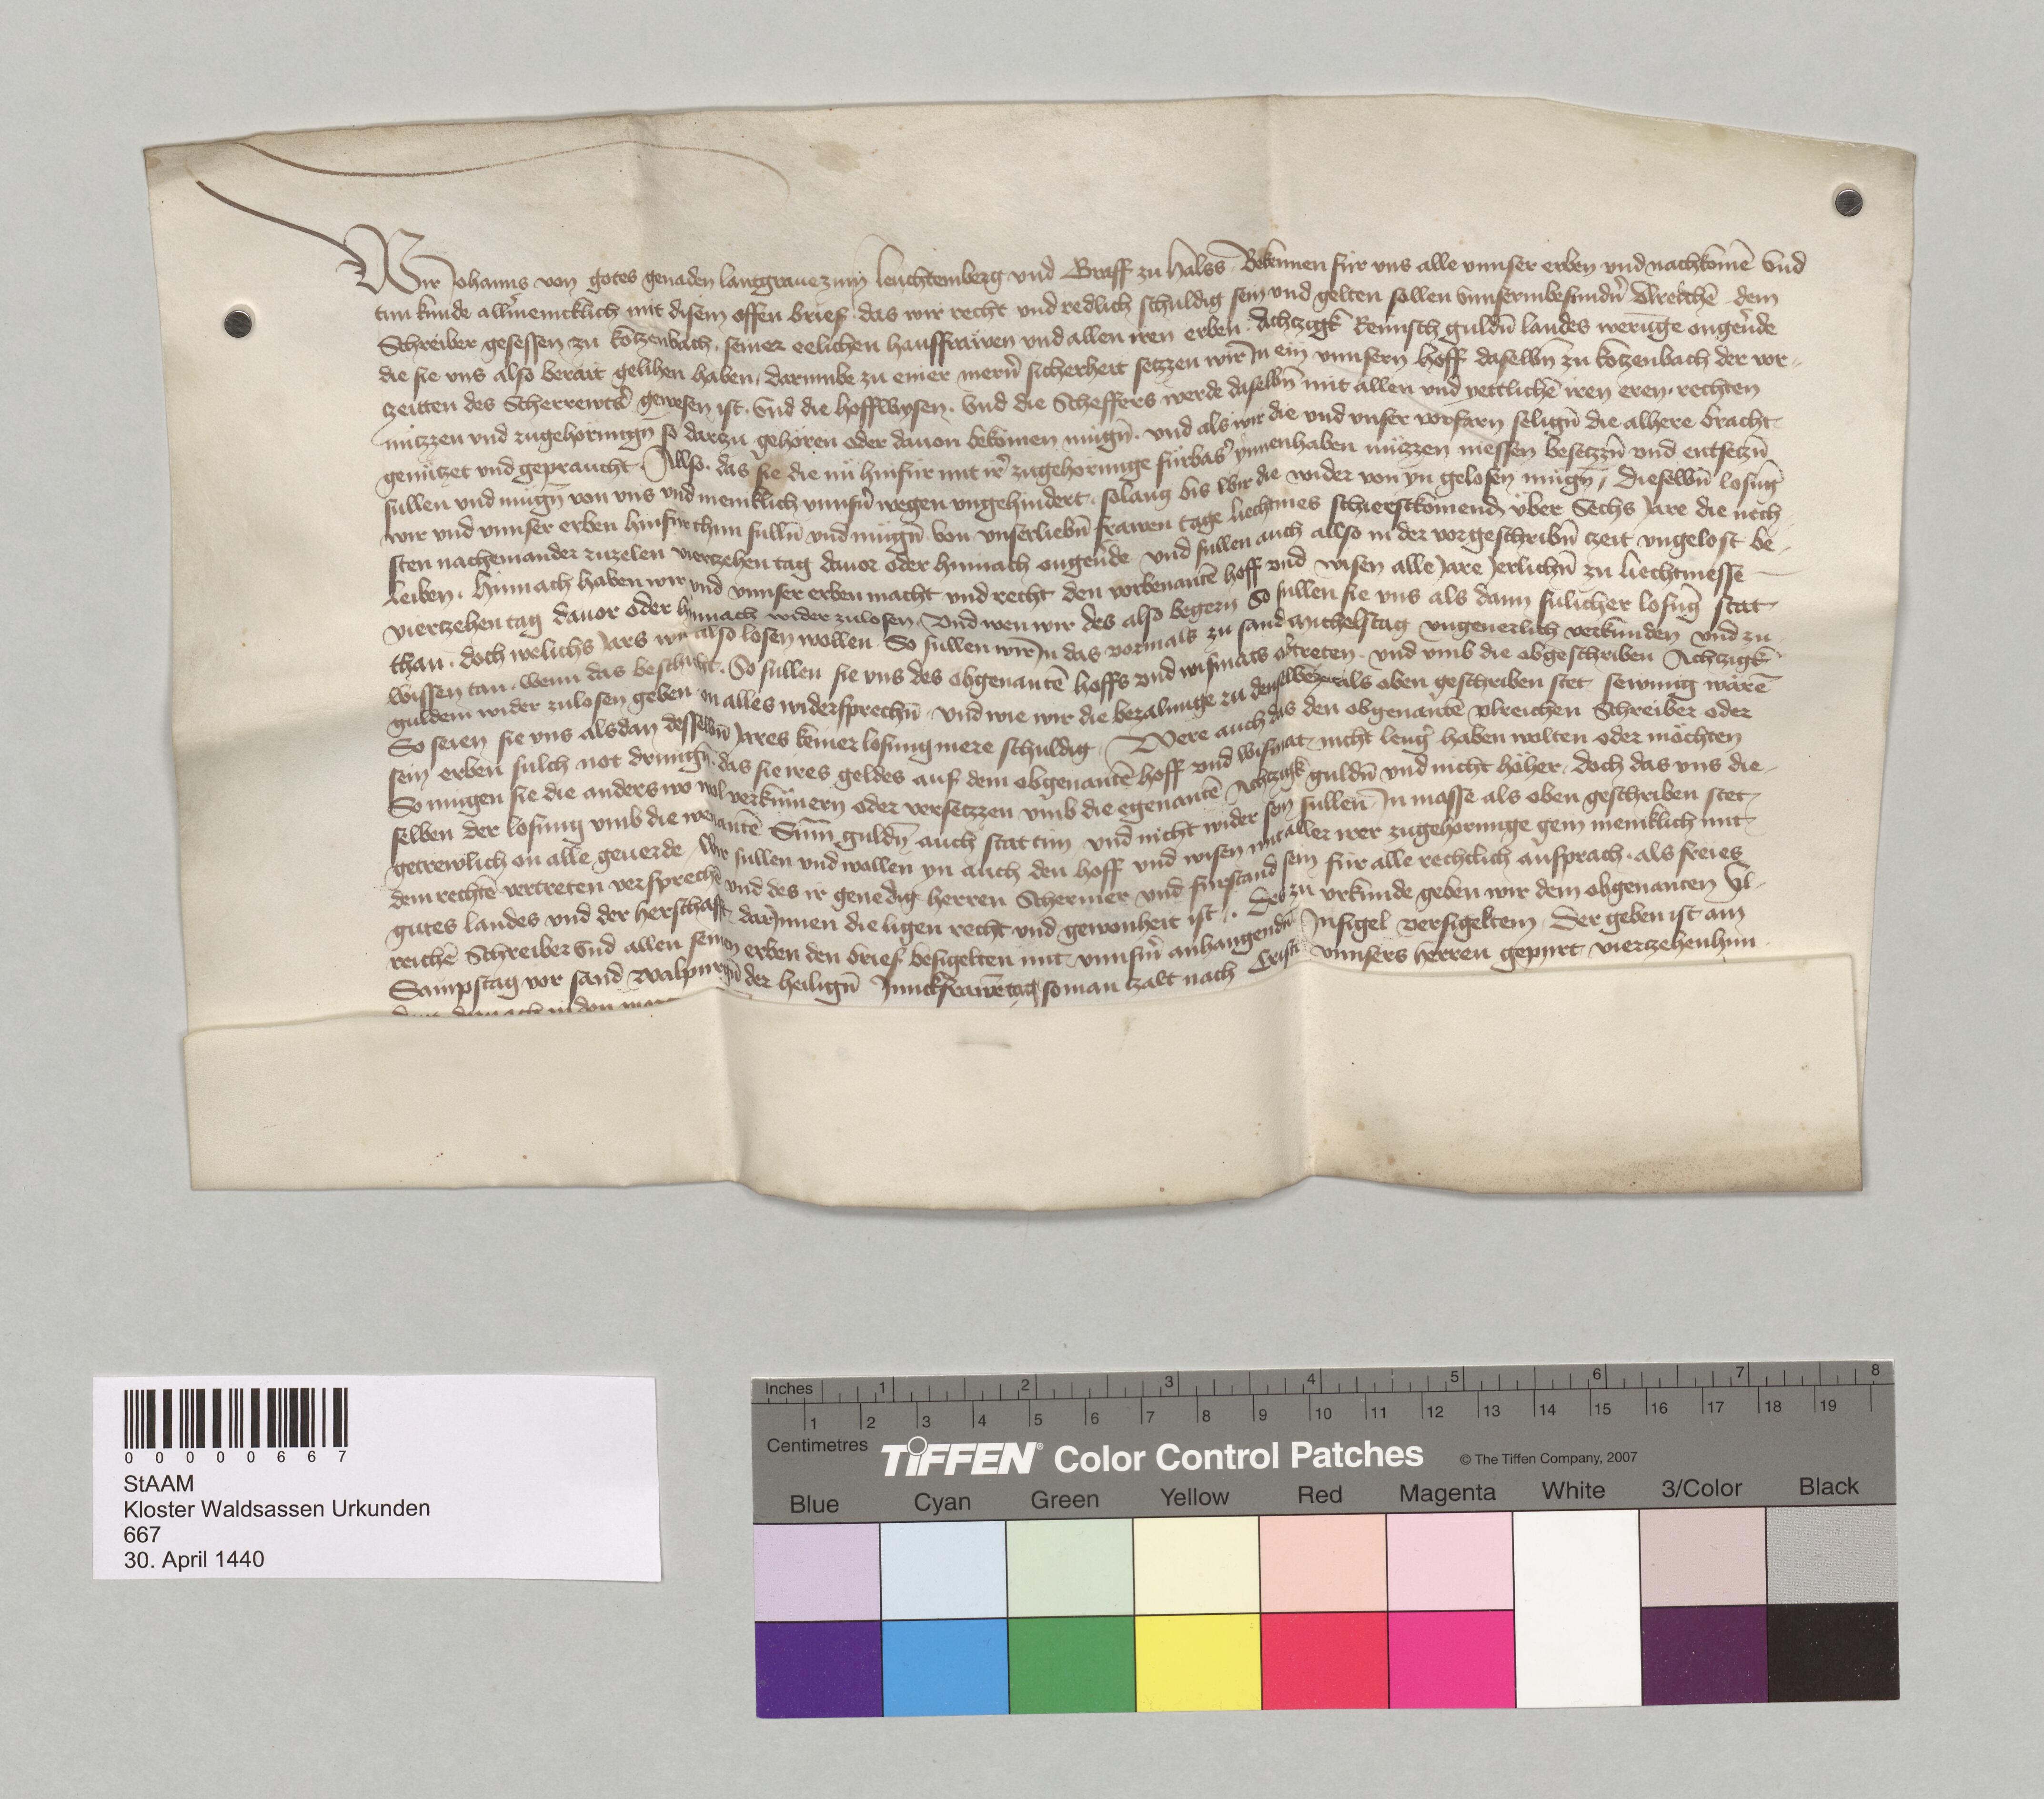 Wir Johanns von gotes genaden lantgraue zum Leuchtemberg vnd Graff zu Halss Bekennen für vns alle vnnser erben vnd nachkomē Vnd
tun kunde allermenicklich mit disem offen brief das wir recht vnd redlich schuldig sein vnd gelten sollen vnnserm besundn̄ Vlreichē dem
Schreiber gesessen zu kotzenbach, seiner eelichen haussfrawen vnd allen iren erben Achtzigk Reinisch guldn̄ landes werūge ongeuerde
die sie vns also berait gelihen haben, darumbe zu einer merern sicherheit setzzen wir In ein vnnsern hoff daselbn̄ zu kotzenbach der vor-
zeitten des Scherrewts gewesen ist. Vnd die hoffwysen. Vnd die Scheffers werde daselbn̄ mit allen vnd yettlichē iren eren, rechten
nützzen vnd zugehörungn̄ so darzu gehören oder dauon bekomen mügn̄. vnd als wir die vnd vnser vorfarn selign̄ die alhere bracht
genützet vnd gepraucht. Allso. das sie die nü hinfür mit ir zugehörunge fürbas ynnenhaben nützzen niessen besetzzn̄ vnd entsetzn̄
sullen vnd mügn̄ von vns vnd meniklich vnnsn̄ wegen vngehindert. solang bis wir die wider von yn gelosen mügn̄, dieselbn̄ losūg
wir vnd vnnser erben hinfür thun sulln̄ vnd mügn̄ von vnserliebn̄ frawen tage liechtmes schierstkomend über Sechs Jare die nech-
sten nacheinander zuzelen viertzehen tag dauor oder hinnach ongeūde vnd sullen auch allso in der vorgeschribn̄ zeit vngelost be-
leiben. hinnach haben wir vnd vnnser erben macht vnd recht den vorbenantē hoff vnd wisen alle Jare Jerlichn̄ zu liechtmesse
viertzehen tag dauor oder hinnach wider zulosen. Vnd wen wir des also begern So sullen sie vns als dann sulicher losūg stat
than. doch welichs Jars wir also losen wollen. So sullen wir In das vormals zu sand michelstag vngeuerlich verkunden vnd zu
wissen tun. wenn das beschicht. So sullen sie vns des obgenantē hoffs vnd wismats abtreten. vnd vmb die obgeschriben Achtzigk
guldein wider zulosen geben on alles widersprechn̄. vnd wie wir die bezalunge zu denselbē zeit als oben geschriben stet sewmig wärē
So seien sie vns alsdan desselbn̄ Jares keiner losung mere schuldig. Were auch das den obgenantē vlreichen Schreiber oder
sein erben sulch not drungn̄. das sie ires geldes auf dem obgenantē hoff vnd wismat nicht lenger haben wolten oder möchten
So mügen sie die anderswo wol verkümern oder versetzzen vmb die egenantē Achtzigk guldn̄ vnd nicht höher. doch das vns die-
selben der losung vmb die wenantē Sum̄ guldn̄ auch stat tun vnd nicht wider sein sullen In masse als oben geschriben stet
getrewlich on alle geuerde. Wir sullen vnd wollen yn auch den hoff vnd wisen mit aller irer zugehörunge gein meniklich mit
dem rechtē vertreten versprechē vnd des ir genedig herren Schermer vnd fürstand sein für alle rechtlich ansprach. als freies
gutes landes vnd der herschafft darinnen die ligen recht vnd gewonheit ist. Des zu vrkunde geben wir dem obgenanten Vl-
reichē Schreiber vnd allen seinen erben den brief besigelten mit vnnserm anhangendn̄ Insigel versigeltem. Der geben ist am
Sampstag vor sand walpurgn̄ der heilign̄ Junckfrawē tag so man zalt nach Cristi vnnsers herren gepurt viertzehenhun
dert darnach in den
0 0 0 0 0 6 6 7
StAAM
Kloster Waldsassen Urkunden
667
30. April 1440
Inches 1 2 3 4 5 6 7 8
1 2 3 4 5 6 7 8 9 10 11 12 13 14 15 16 17 18 19
Centimetres
TIFFEN® Color Control Patches © The Tiffen Company, 2007
Blue Cyan Green Yellow Red Magenta White 3/Color Black